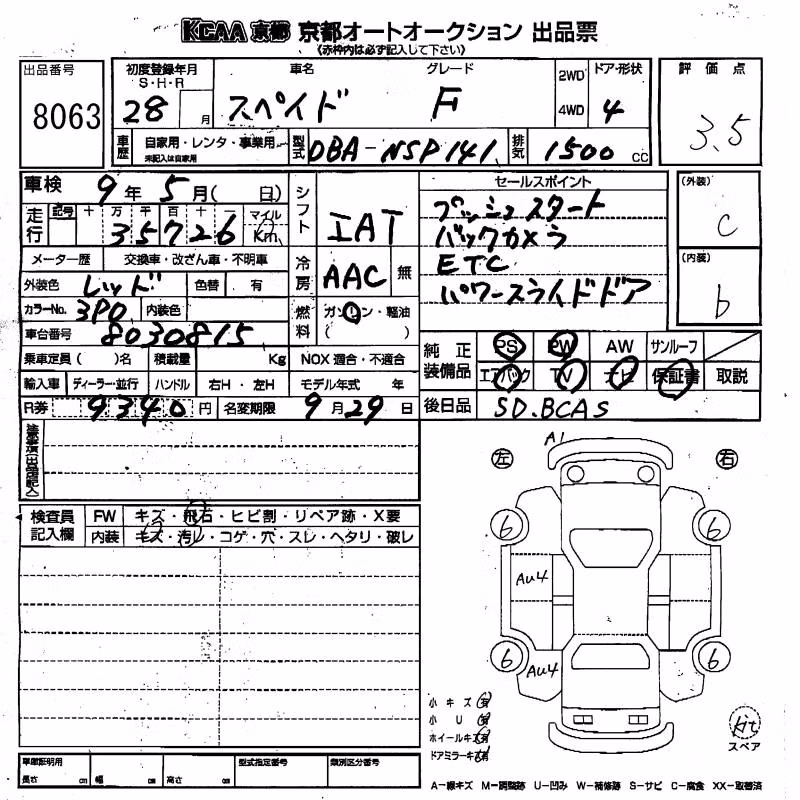 KCAA 京都 京都オートオークション 出品票
《赤枠内は必ず記入して下さい》
出品番号 8063
初度登録年月 S・H・R 28 月
車名 スペイド
グレード F
2WD 4WD
ドア・形状 4
評価点 3.5
車歴 自家用・レンタ・事業用 未記入は自家用
型式 DBA-NSP141
排気 1500 CC
車検 9年 5月( 日)
シフト IAT
セールスポイント
プッシュスタート
バックカメラ
ETC
パワースライドドア
(外装) C
(内装) b
走行 記号 十 万 千 百 十 一 35726 マイル Km
メーター歴 交換車・改ざん車・不明車
冷房 AAC 無
外装色 レッド 色替 有
カラーNo. 3P0 内装色
燃料 ガソリン・軽油 ( )
車台番号 8030815
乗車定員( )名 積載量 Kg NOX 適合・不適合
純正装備品 PS PW AW サンルーフ
エアバック TV ナビ 保証書 取説
輸入車 ディーラー・並行 ハンドル 右H・左H モデル年式 年
R券 9340円 名変期限 9月29日
後日品 SD.BCAS
検査員記入欄 FW キズ・飛石・ヒビ割・リペア跡・X要
内装 キズ・汚レ・コゲ・穴・スレ・ヘタリ・破レ
A1
左 右
6 6
Au4
6 6
Au4
小キズ 有
小U 有
ホイールキズ 有
ドアミラーキズ 有
Kit
スペア
車庫証明用 長さ cm 幅 cm 高さ cm 型式指定番号 類別区分番号
A-線キズ M-調整跡 U-凹み W-補修跡 S-サビ C-腐食 XX-取替済